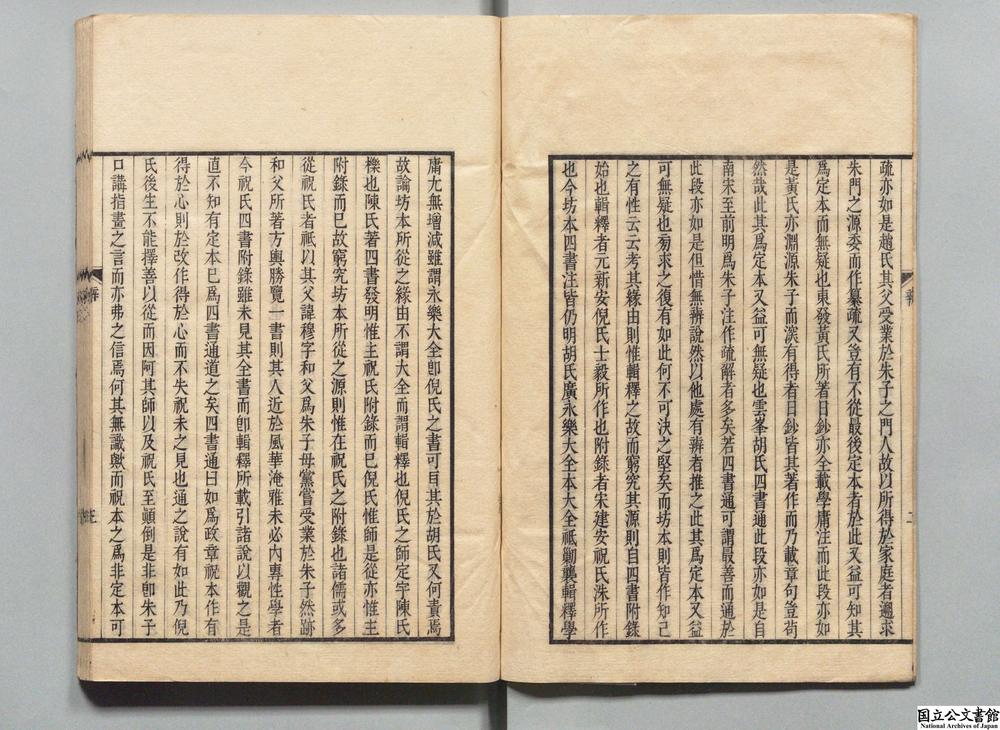 疏亦如是趙氏其父受業於朱子之門人故以所得於家庭者遡求
朱門之源委而作纂疏又豈有不從最後定本者於此又益可知其
爲定本而無疑也東發黃氏所著日鈔亦全載學庸注而此段亦如
是黃氏亦淵源朱子而深有得者日鈔皆其著作而乃載章句豈苟
然哉此其爲定本又益可無疑也雲峯胡氏四書通此段亦如是自
南宋至前明爲朱子注作疏解者多矣若四書通可謂最善而通於
此段亦如是但惜無辨說然以他處有辨者推之此其爲定本又益
可無疑也菊求之復有如此何不可決之堅矣而坊本則皆作知己
之有性云云考其緣由則惟輯釋之故而窮究其源則自四書附錄
始也輯釋者元新安倪氏士毅所作也附錄者宋建安祝氏洙所作
也今坊本四書注皆仍明胡氏廣永樂大全本大全祇勦襲輯釋學
庸尤無增減雖謂永樂大全卽倪氏之書可目其於胡氏又何責焉
故論坊本所從之緣由不謂大全而謂輯釋也倪氏之師定宇陳氏
櫟也陳氏著四書發明惟主祝氏附錄而已倪氏惟師是從亦惟主
附錄而已故窮究坊本所從之源則惟在祝氏之附錄也諸儒或多
從祝氏者祇以其父諱穆字和父爲朱子母黨嘗受業於朱子然跡
和父所著方輿勝覽一書則其人近於風華淹雅未必內專性學者
今祝氏四書附錄雖未見其全書而卽輯釋所載引諸說以觀之是
直不知有定本已爲四書通道之矣四書通曰如爲政章祝本作有
得於心則於改作得於心而不失祝未之見也通之說有如此乃倪
氏後生不能擇善以從而因阿其師以及祝氏至顚倒是非卽朱子
口講指畫之言而亦弗之信焉何其無識歟而祝本之爲非定本可
二
三
国立公文書館
National Archives of Japan